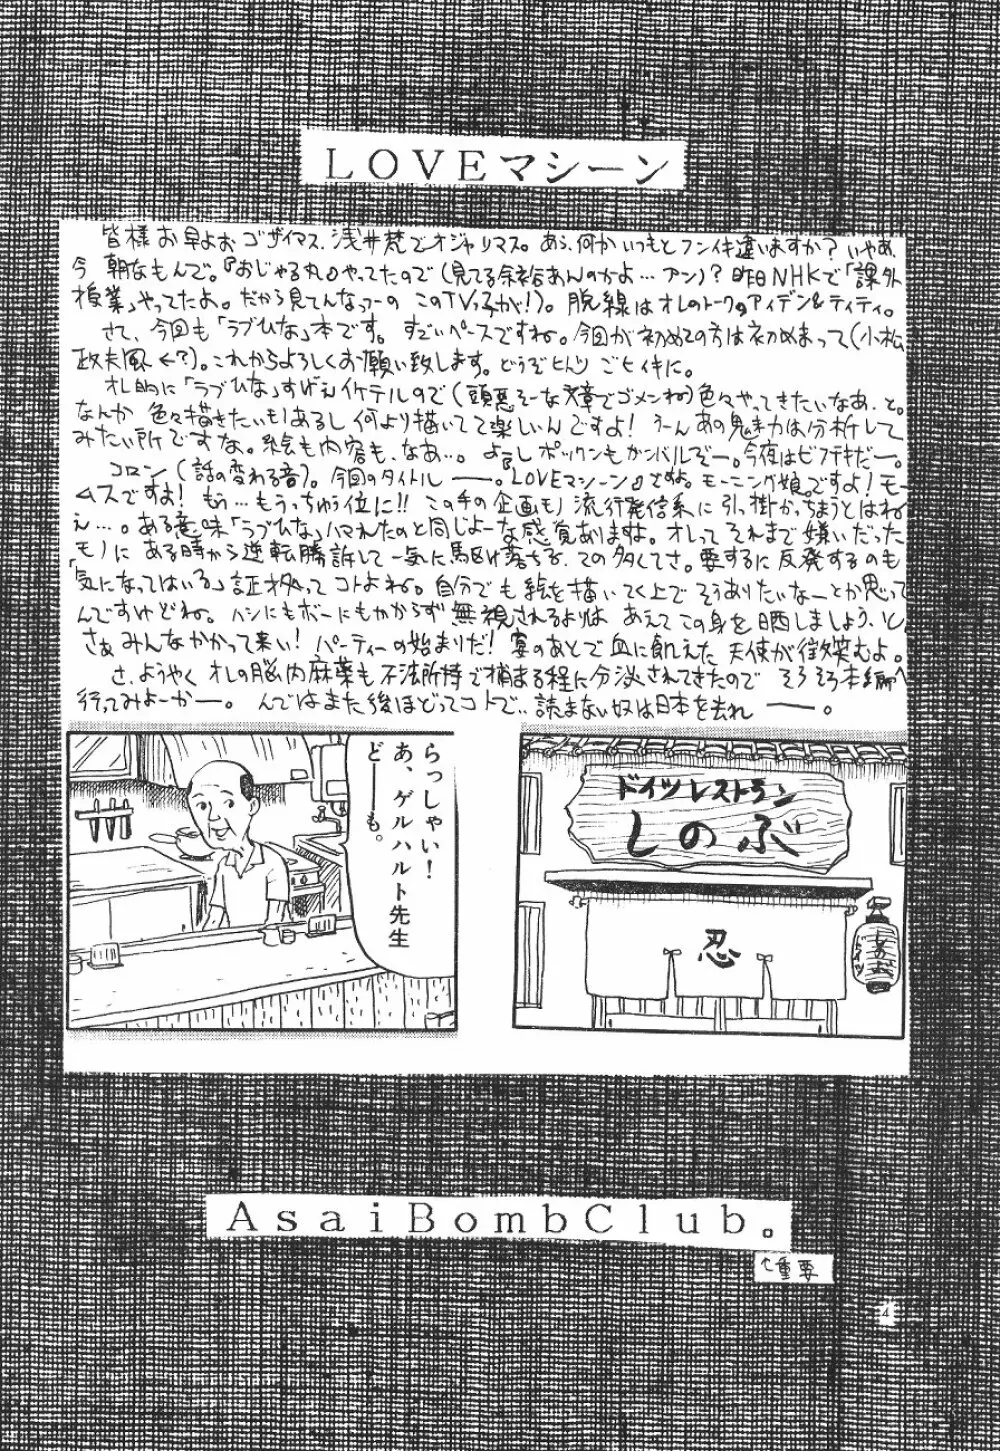 LOVEマシーン
皆様お早よおゴザイマス、浅井梵でオジャリマス。あら、何かいつもとフンイキ違いますか？いやあ、
今朝なもんで。『おじゃる丸』やってたので(見てる余裕あんのかよ…アン)？昨日NHKで「課外
授業」やってたよ。だから見てんなっつーの このTVっ子が！)。脱線はオレのトークのアイデン&ティティ。
さて、今回も「ラブひな」本です。すごいペースですね。今回が初めての方は初めまして(小松
政夫風←？)。これからよろしくお願い致します。どうぞヒトツ ごヒイキに。
オレ的に「ラブひな」すげえイケテルので(頭悪そーな文章でゴメンね)色々やってきたいなあ、と。
なんか 色々描きたいモノあるし何より描いてて楽しいんですよ！うーんあの魅力は分析して
みたい所ですな。絵も内容も、なあ…。よぉしボックンもガンバルぞー。今夜はビフテキだー。
コロン(話の変わる音)。今回のタイトル──。『LOVEマシーン』ですよ。モーニング娘。ですよ！モー
ムスですよ！もぅ…もうっちゅう位に!!この手の企画モノ流行発信系に引っ掛かっちまうとはね
え…。ある意味「ラブひな」ハマれたのと同じよーな感覚ありますね。オレってそれまで嫌いだった
モノに ある時から逆転勝訴して一気に駆け落ちるっての多くてさ。要するに反発するのも
「気になってはいる」証拠ってコトよね。自分でも絵を描いてく上でそうありたいなーとか思って
んですけどね。ハシにもボーにもかからず無視されるよりは あえてこの身を晒しましょう、と。
さぁみんなかかって来い！パーティーの始まりだ！宴のあとで血に飢えた 天使が微笑むよ。
さ、ようやく オレの脳内麻薬も不法所持で捕まる程に分泌されてきたので そろそろ本編へ
行ってみよーかー。んではまた後ほどってコトで、読まない奴は日本を去れ──。
ドイツレストラン
しのぶ
忍
しのぶ
ドイツ
らっしゃい！
あ、ゲルハルト先生
ど──も。
AsaiBombClub。
↑重要
4